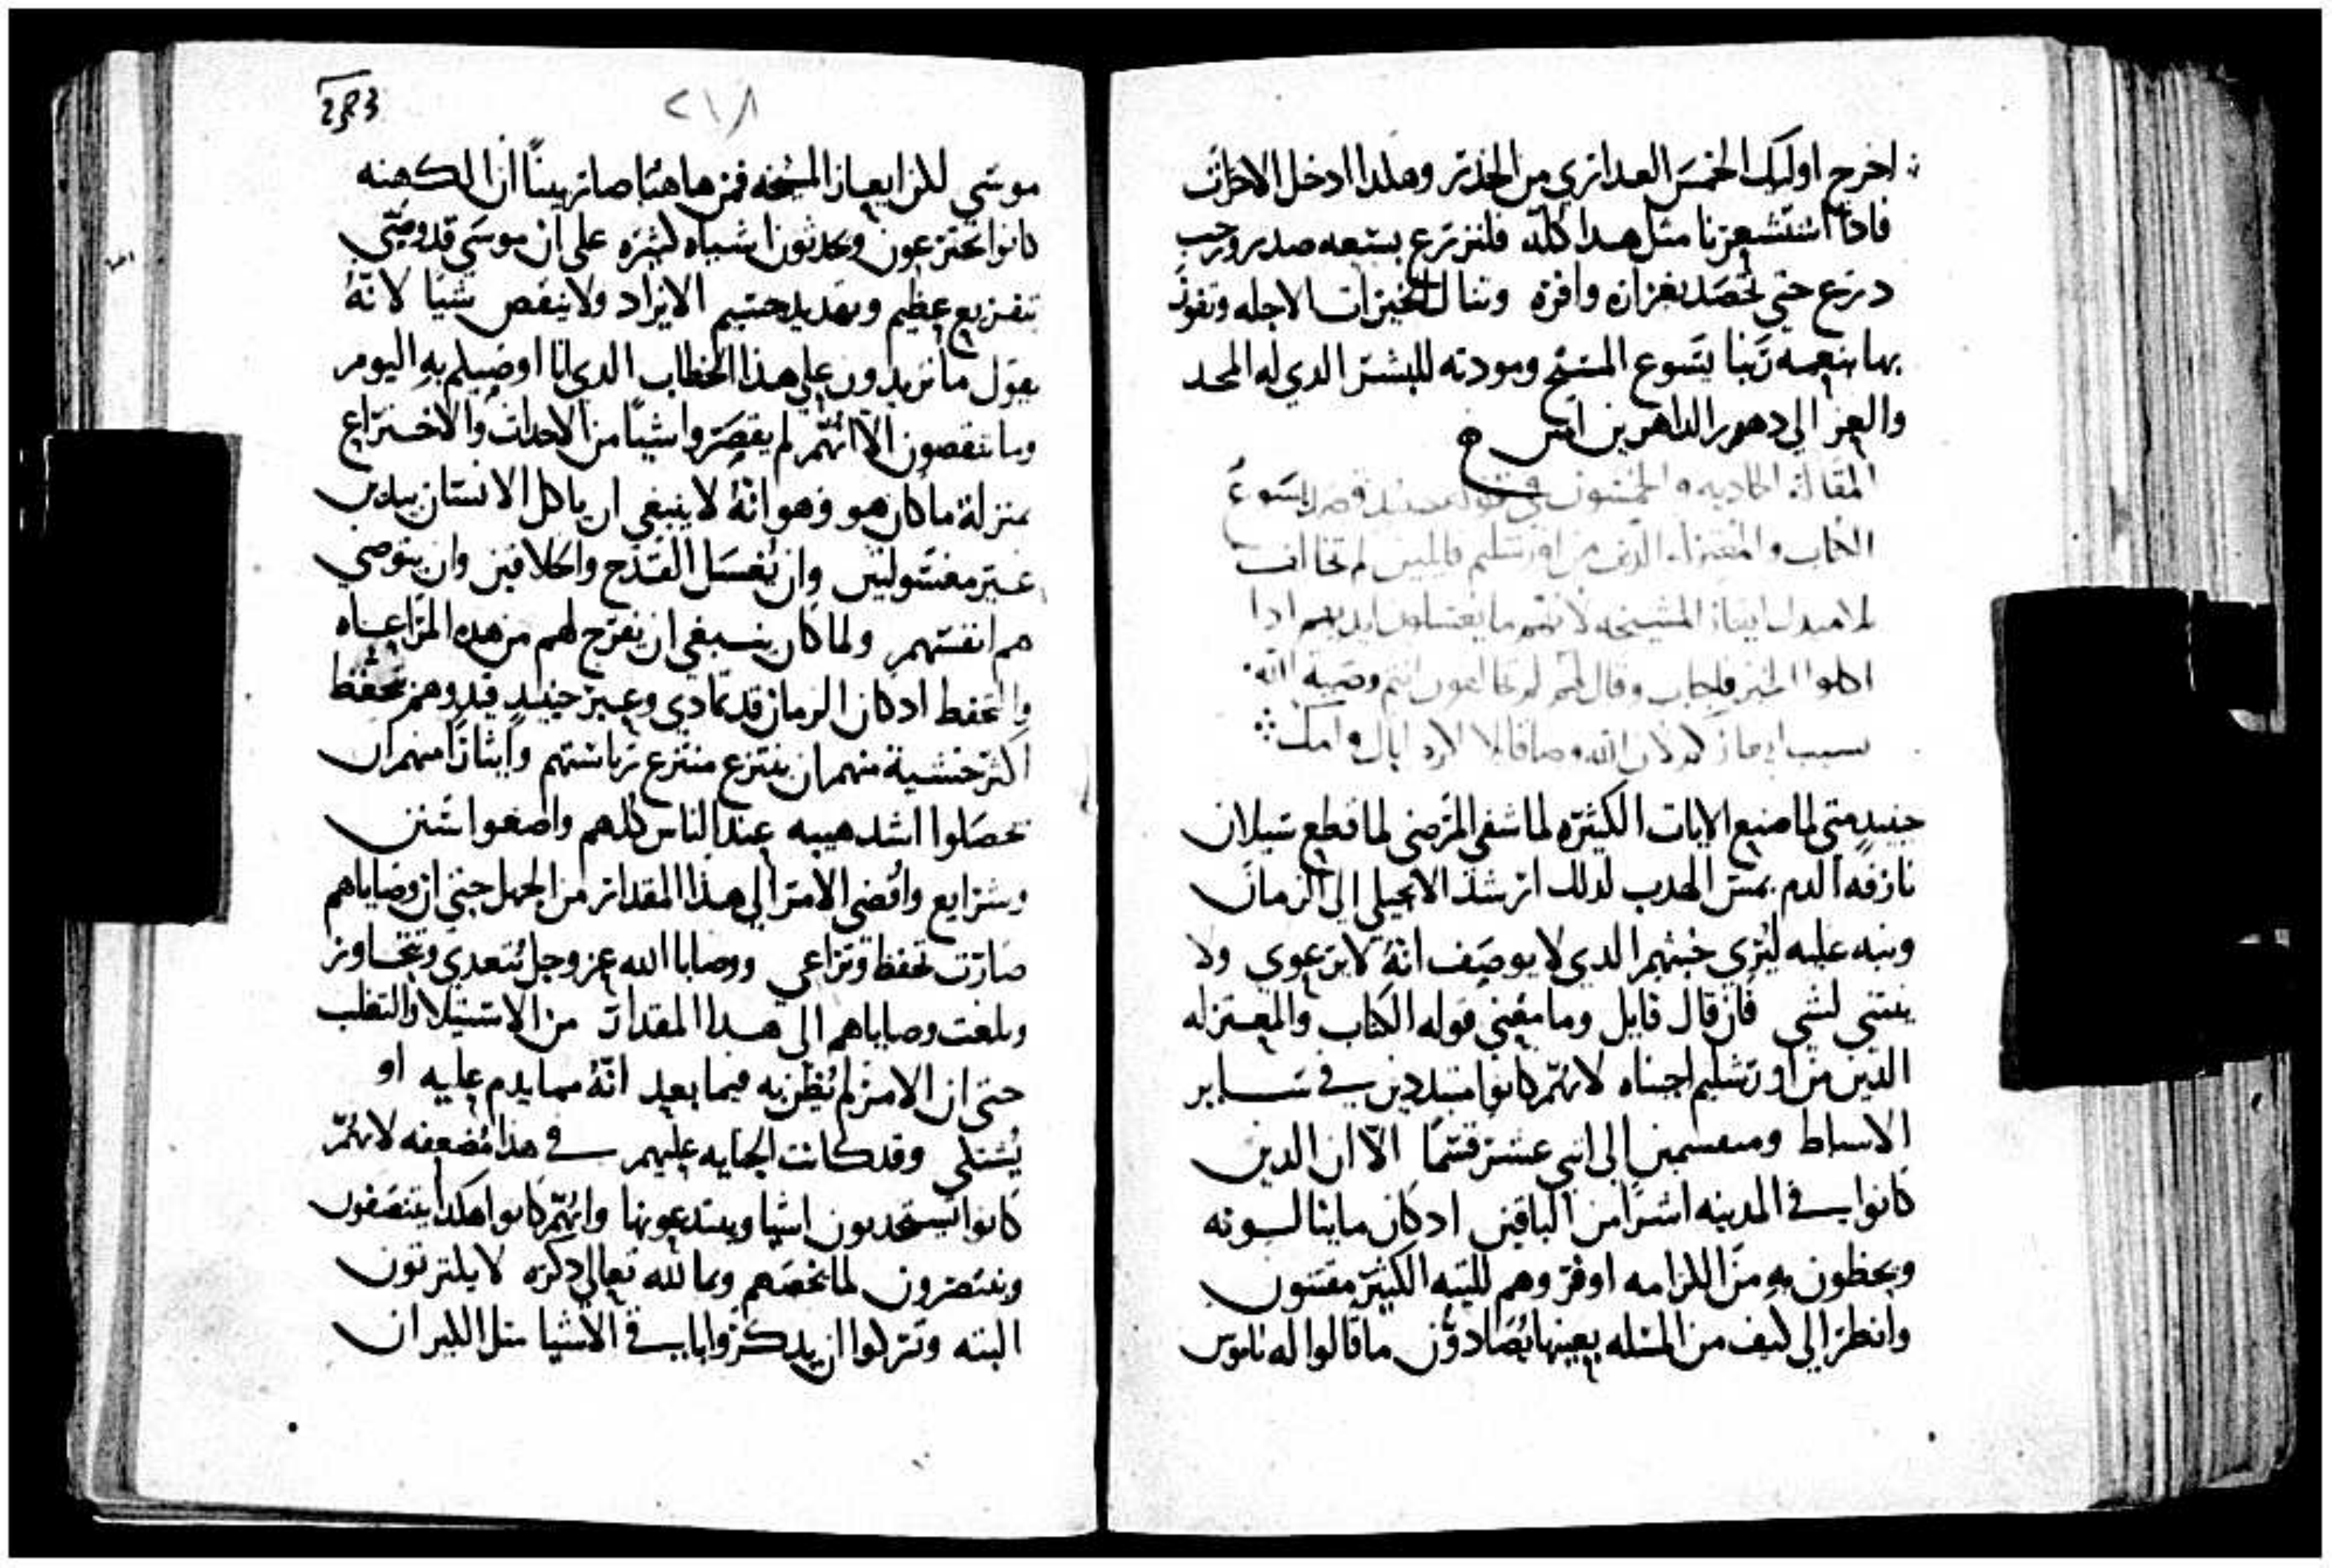 اخرج اوليك الخمس العدارى من الخدر وهكدا ادخل الاخرات
فادا استشعرنا مثل هدا كله فلنزرع بسعه صدر ورحب
درع حتى نحصد بغزاره وافره وننال الخيرات الاجله ونفوز
بها بنعمه ربنا يسوع المسيح ومودته للبشر الدي له المجد
والعز الى دهور الداهرين امين
المقاله الحاديه والخمسون في قوله حينيد قصد يسوع
الكتاب والمعتزله الدين من اورشليم قايلين لم تخالف
تلاميدك ايثار المشيخه لانهم ما يغسلون ايديهم ادا
اكلوا الخبز فاجاب وقال لهم لم تخالفون انتم وصية الله
بسبب ايثاركم لان الله وصا قايلا اكرم اباك وامك
حينيد متى لما صنع الايات الكثيره لما شفى المرضى لما قطع سيلان
نازفة الدم بمس الهدب لدلك ارشد الانجيلي الى الزمان
ونبه عليه ليري خبثهم الدي لا يوصف انه لا يرعوي ولا
ينثني لشي فان قال قايل وما معنى قوله الكتاب والمعتزله
الدين من اورشليم اجبناه لانهم كانوا متبددين في ساير
الاسباط ومنقسمين الى اثني عشر قسما الا ان الدين
كانوا في المدينه اشر من الباقين ادكان ما ينالونه
ويحظون به من الكرامه اوفر وهم للتيه الكثير مقتنون
وانظر الى كيف من المسله بعينها يصادون ما قالوا له ناموس
283
٢١٨
موسى لكن ايعاز المشيخه فمن هاهنا صار بينا ان الكهنه
كانوا يخترعون ويحدثون اشياه كثيره على ان موسى قد وصى
بتفزيع عظيم وتهديد جسيم الا يزاد ولا ينقص شيا لانه
يقول ما تزيدون على هدا الخطاب الدي انا اوصيكم به اليوم
وما تنقصون الا انهم لم يقصروا شيا من الاحداث والاختراع
بمنزلة ما كان هو وهو انه لا ينبغي ان ياكل الانسان بيدين
غير مغسولتين وان يغسل القدح والكلاقين وان يتوضى
هم انفسهم ولما كان ينبغي ان يفرج لهم من هده المراعاه
والتحفظ ادكان الزمان قد تمادى وعبر حينيد قيدوهم بتحفظ
اكثر خشية منهم ان ينتزع منتزع رياستهم وايثارا منهم ان
يحصلوا اشد هيبه عند الناس كلهم واضعوا سنن
وشرايع وافضى الامر الى هدا المقدار من الجهل حتى ان وصاياهم
صارت تحفظ وتراعى ووصايا الله عز وجل تتعدى وتتجاوز
وبلغت وصاياهم الى هدا المقدار من الاستيلا والتغلب
حتى ان الامر لم يظن به فيما بعد انه مما يدم عليه او
يشتكى وقد كانت الجنايه عليهم في هدا مضعفه لانهم
كانوا يستحدثون اشيا ويبتدعونها وانهم كانوا هكدا ينتصفون
وينتصرون لما يخصهم وما لله تعالى دكره لا يكترثون
البته وتركوا ان يدكروا باب في الاشيا مثل الكيزان